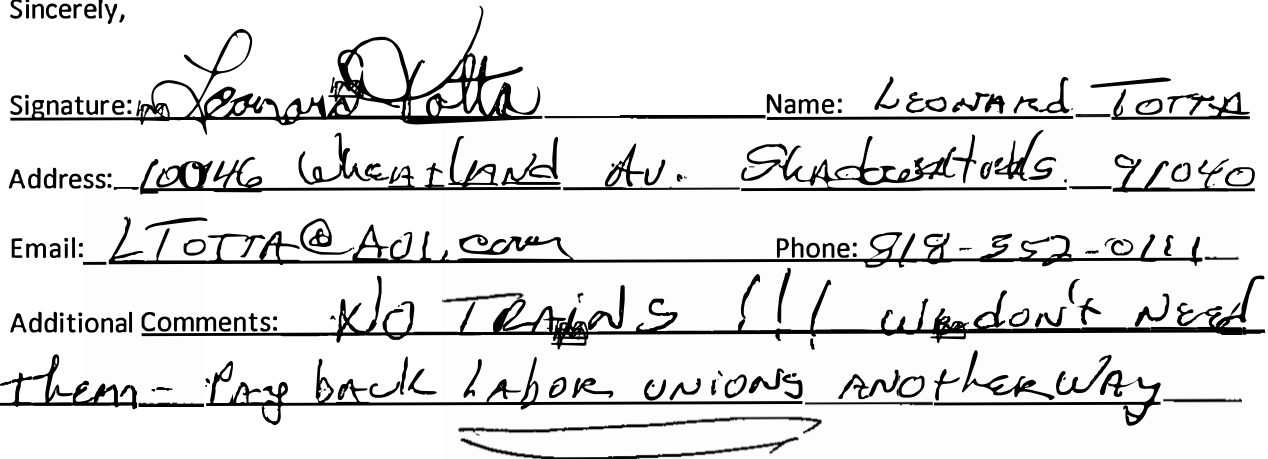 Sincerely,
Signature: Leonard Totta Name: LEONARD TOTTA
Address: 10046 WheAtLAND Av. 91040
Email: LTOTTA@AOl.com Phone: 818-352-0111
Additional Comments: NO TRAINS !!! WE don't NEEd
them - PAy bACK LAbOR UNIONS ANOthER WAy